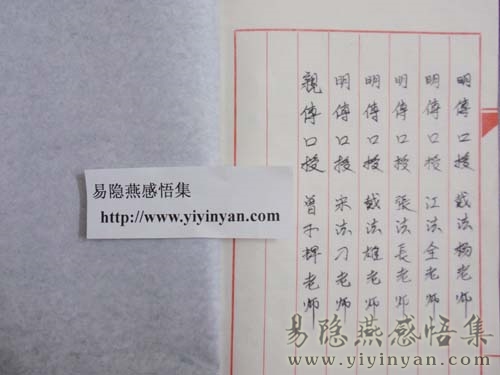 明傳口授 戴法楊老师
明傳口授 江法全老师
明傳口授 張法長老师
明傳口授 戴法雄老师
明傳口授 宋法刁老师
親傳口授 曾不捍老师
易隐燕感悟集
http://www.yiyinyan.com
易隐燕感悟集
www.yiyinyan.com